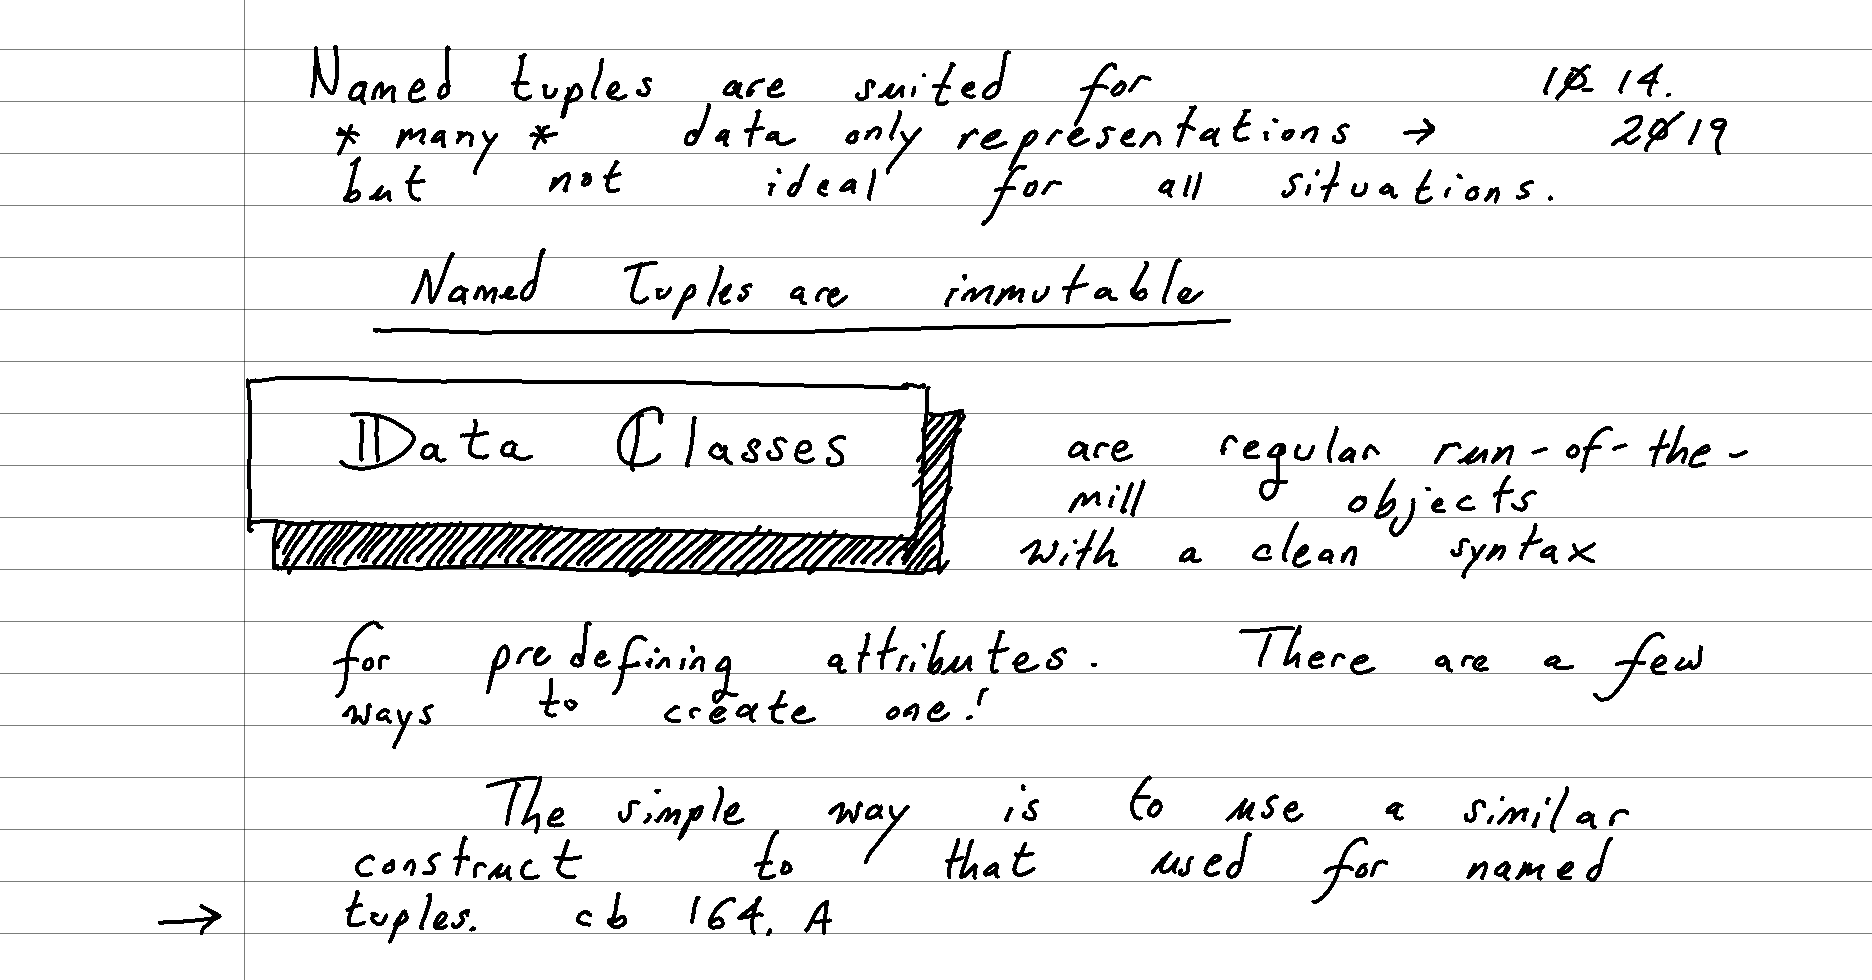 Named tuples are suited for 10-14.
* many * data only representations → 2019
but not ideal for all situations.
Named Tuples are immutable
Data Classes are regular run-of-the-
mill objects
with a clean syntax
for predefining attributes. There are a few
ways to create one!
The simple way is to use a similar
construct to that used for named
→ tuples. cb 164. A